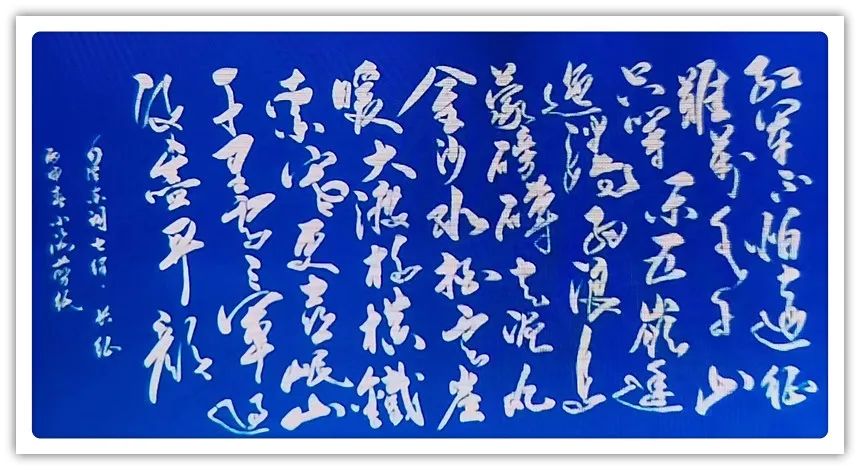 红军不怕远征
難万水千山
只等闲五嶺逶
迤腾细浪乌
蒙磅礴走泥丸
金沙水拍云崖
暖大渡桥横鐵
索寒更喜岷山
千里雪三軍过
后尽开颜
毛泽东词七律·长征
丙申春